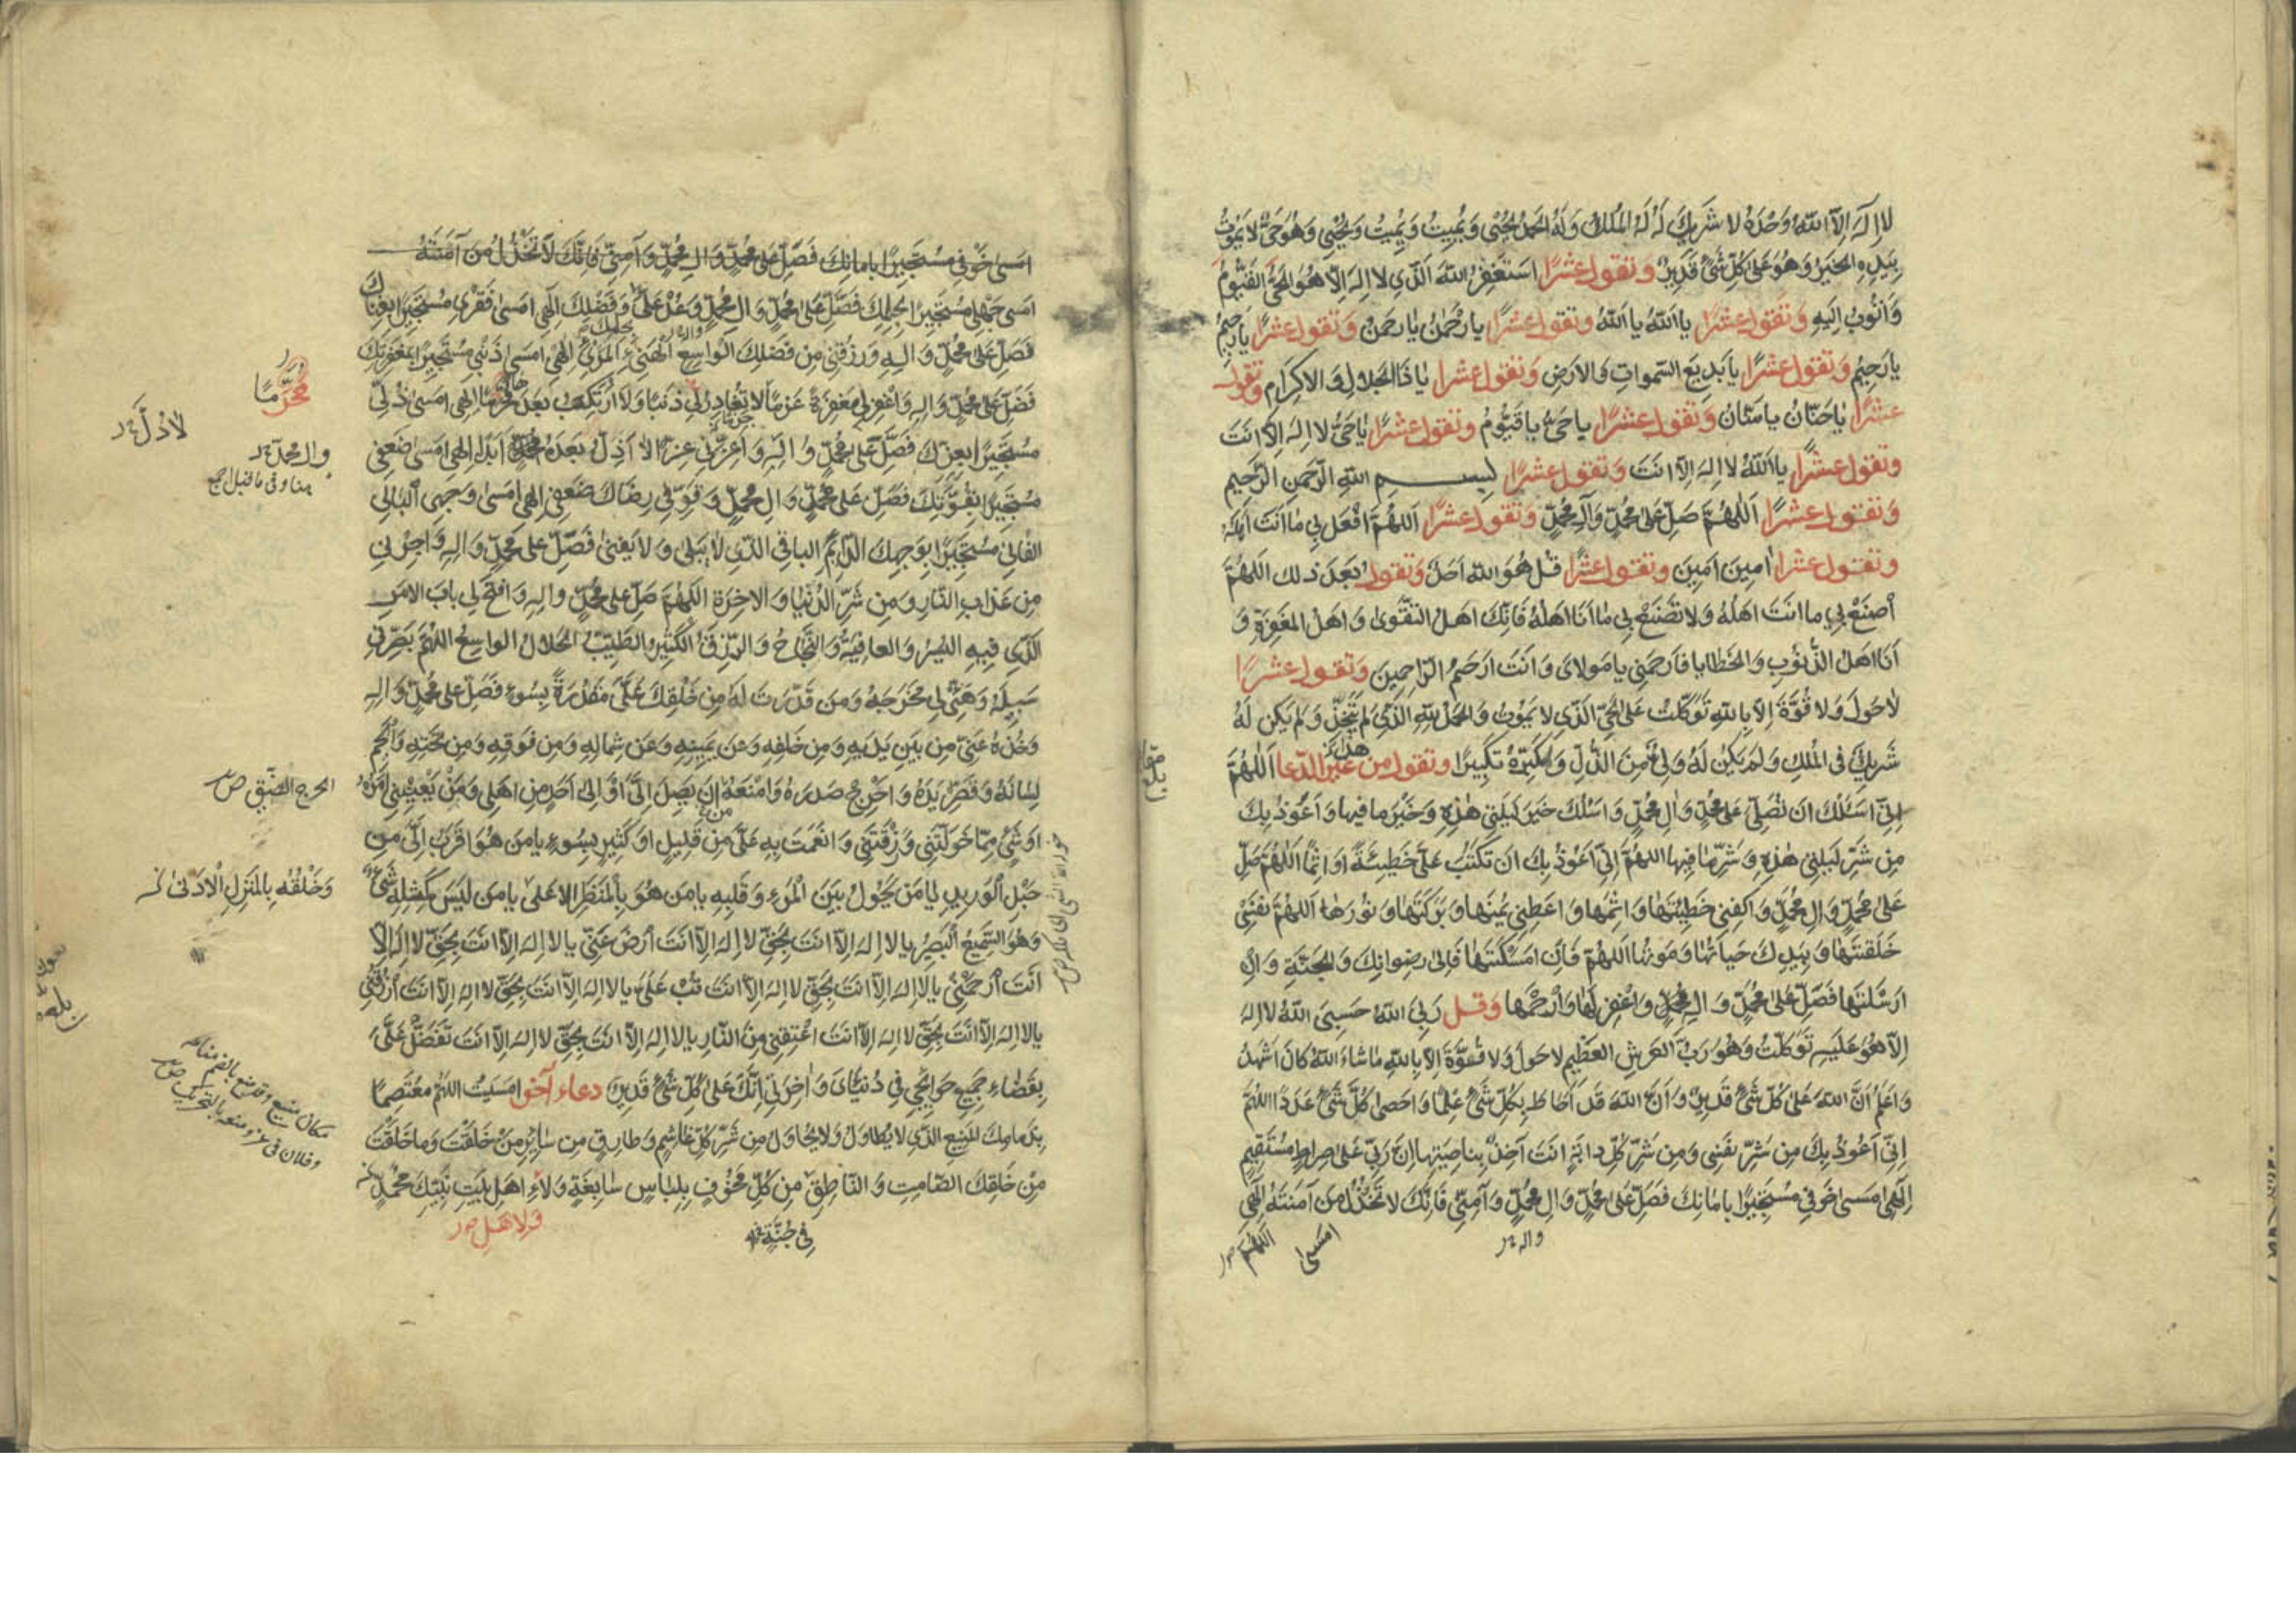 لا إِلَهَ إِلَّا اللهُ وَحْدَهُ لا شَرِيكَ لَهُ لَهُ المُلْكُ وَلَهُ الحَمْدُ يُحْيِي وَيُمِيتُ وَيُمِيتُ وَيُحْيِي وَهُوَ حَيٌّ لا يَمُوتُ
بِيَدِهِ الخَيْرُ وَهُوَ عَلَى كُلِّ شَيْءٍ قَدِيرٌ وَتَقُولُ عَشْرًا اسْتَغْفِرُ اللهَ الَّذِي لا إِلَهَ إِلَّا هُوَ الحَيُّ القَيُّومُ
وَأَتُوبُ إِلَيْهِ وَتَقُولُ عَشْرًا يا اَللهُ يا اَللهُ وتقول عشرًا يا رَحْمنُ يا رَحمنُ وَتَقُولُ عَشْرًا يا رَحِيمُ
يا رَحِيمُ وَتَقُولُ عَشْرًا يا بَدِيعَ السَّمواتِ وَالأرضِ وَتَقُولُ عَشْرًا يا ذَا الجَلالِ وَالاِكرَامِ وَتَقُولُ
عَشْرًا يا حَنَّانُ يا مَنَّانُ وَتَقُولُ عَشْرًا يا حَيُّ يا قَيُّومُ وَتَقُولُ عَشْرًا يا حَيُّ لا اِلهَ اِلّا اَنتَ
وَتَقُولُ عَشْرًا يا اَللهُ لا اِلهَ اِلّا اَنتَ وَتَقُولُ عَشْرًا بسم اللهِ الرَّحمنِ الرَّحيمِ
وَتَقُولُ عَشْرًا اَللّهُمَّ صَلِّ عَلى مُحَمَّدٍ وَآلِ مُحَمَّدٍ وَتَقُولُ عَشْرًا اَللّهُمَّ افْعَل بِي ما اَنتَ اَهلُهُ
وَتَقُولُ عَشْرًا آمِينَ آمِينَ وَتَقُولُ عَشْرًا قُل هُوَ الله اَحَدٌ وَتَقُولُ بَعدَ ذلك اللهُمَّ
اصْنَعْ بِي ما اَنتَ اَهلُهُ وَلا تَصْنَعْ بِي ما اَنا اَهلُهُ فَاِنَّكَ اَهلُ التَّقْوى وَاَهلُ المَغفِرَةِ وَ
اَنَا اَهلُ الذُّنُوبِ وَالخَطايا فَارحَمنِي يا مَولايَ وَاَنتَ اَرحَمُ الرّاحِمِينَ وَتَقُولُ عَشْرًا
لا حَولَ وَلا قُوَّةَ اِلّا بِاللهِ تَوَكَّلتُ عَلَى الحَيِّ الَّذِي لا يَمُوتُ وَالحَمدُ للهِ الَّذِي لَم يَتَّخِذ وَلَم يَكُن لَهُ
شَرِيكٌ فِي المُلكِ وَلَم يَكُن لَهُ وَلِيٌّ مِنَ الذُّلِّ وَكَبِّرهُ تَكبِيرًا وتقول من غير هذا الدعا اَللّهُمَّ
اِنِّي اَسئَلُكَ ان تُصَلِّيَ عَلى مُحَمَّدٍ وَآلِ مُحَمَّدٍ وَاَسئَلُكَ خَيرَ لَيلَتِي هذِهِ وَخَيرَ ما فيها وَاَعُوذُ بِكَ
مِن شَرِّ لَيلَتِي هذِهِ وَشَرِّ ما فيها اللهُمَّ اِنِّي اَعُوذُ بِكَ ان تَكتُبَ عَلَيَّ خَطِيئَةً اَو اِثمًا اَللّهُمَّ صَلِّ
عَلى مُحَمَّدٍ وَآلِ مُحَمَّدٍ وَاكفِنِي خَطِيئَتَها وَاِثمَها وَاَعطِنِي يُمنَها وَبَرَكَتَها وَنُورَها اَللّهُمَّ نَفسِي
خَلَقتَها وَبِيَدِكَ حَياتُها وَمَوتُها اَللّهُمَّ فَاِن اَمسَكتَها فَاِلى رِضوانِكَ وَالجَنَّةِ وَاِن
اَرسَلتَها فَصَلِّ عَلى مُحَمَّدٍ وَآلِ مُحَمَّدٍ وَاغفِر لَها وَارحَمها وَقُل رَبِّيَ اللهُ حَسبِيَ اللهُ لا اِلهَ
اِلّا هُوَ عَلَيهِ تَوَكَّلتُ وَهُوَ رَبُّ العَرشِ العَظِيمِ لا حَولَ وَلا قُوَّةَ اِلّا بِاللهِ ما شاءَ اللهُ كانَ اَشهَدُ
وَاَعلَمُ اَنَّ اللهَ عَلى كُلِّ شَيءٍ قَدِيرٌ وَاَنَّ اللهَ قَد اَحاطَ بِكُلِّ شَيءٍ عِلمًا وَاَحصى كُلَّ شَيءٍ عَدَدًا اللهُمَّ
اِنِّي اَعُوذُ بِكَ مِن شَرِّ نَفسِي وَمِن شَرِّ كُلِّ دابَّةٍ اَنتَ آخِذٌ بِناصِيَتِها اِنَّ رَبِّي عَلى صِراطٍ مُستَقِيمٍ
اِلهِي اَمسى خَوفِي مُستَجِيرًا بِاَمانِكَ فَصَلِّ عَلى مُحَمَّدٍ وَآلِ مُحَمَّدٍ وَآمِنِّي فَاِنَّكَ لا تَخذُلُ مَن آمَنتَهُ اِلهِي
واله
امسى
اللهم
امسى خَوفِي مُستَجِيرًا باَمانِكَ فَصَلِّ عَلى مُحَمَّدٍ وَآلِ مُحَمَّدٍ وَآمِنِّي فَاِنَّكَ لا تَخذُلُ مَن آمَنتَهُ
امسى جَهلِي مُستَجِيرًا بِحِلمِكَ فَصَلِّ عَلى مُحَمَّدٍ وَآلِ مُحَمَّدٍ وَعُد عَلَيَّ وَفَضلِكَ اِلهِي امسى فَقرِي مُستَجِيرًا بِغِناكَ
فَصَلِّ عَلى مُحَمَّدٍ وَآلِهِ وَرزُقنِي مِن فَضلِكَ الواسِعِ الهَنِيءِ المَرِيءِ اِلهِي اَمسى ذَنبِي مُستَجِيرًا بِمَغفِرَتِكَ
فَصَلِّ عَلى مُحَمَّدٍ وَآلِهِ وَاغفِر لِي مَغفِرَةً عَزمًا لا تُغادِرُ لِي ذَنبًا وَلا اَرتَكِبُ بَعدَها مُحَرَّمًا اِلهِي اَمسى ذُلِّي
مُستَجِيرًا بِعِزِّكَ فَصَلِّ عَلى مُحَمَّدٍ وَآلِهِ وَاَعِزَّنِي عِزًّا لا اَذِلُّ بَعدَهُ اَبَدًا اِلهِي اَمسى ضَعفِي
مُستَجِيرًا بِقُوَّتِكَ فَصَلِّ عَلى مُحَمَّدٍ وَآلِ مُحَمَّدٍ وَقَوِّ فِي رِضاكَ ضَعفِي اِلهِي اَمسى وَجهِيَ البالِي
الفانِي مُستَجِيرًا بِوَجهِكَ الدّائِمِ الباقِي الَّذِي لا يَبلى وَلا يَفنى فَصَلِّ عَلى مُحَمَّدٍ وَآلِهِ وَاَجِرنِي
مِن عَذابِ النّارِ وَمِن شَرِّ الدُّنيا وَالآخِرَةِ اَللّهُمَّ صَلِّ عَلى مُحَمَّدٍ وَآلِهِ وَافتَح لِي بابَ الاَمرِ
الَّذِي فِيهِ اليُسرُ وَالعافِيَةُ وَالنَّجاحُ وَالرِّزقُ الكَثِيرُ الطَّيِّبُ الحَلالُ الواسِعُ اللهُمَّ بَصِّرنِي
سَبِيلَهُ وَهَيِّئ لِي مَخرَجَهُ وَمَن قَدَّرتَ لَهُ مِن خَلقِكَ عَلَيَّ مَقدُرَةً بِسُوءٍ فَصَلِّ عَلى مُحَمَّدٍ وَآلِهِ
وَخُذهُ عَنِّي مِن بَينِ يَدَيهِ وَمِن خَلفِهِ وَعَن يَمِينِهِ وَعَن شِمالِهِ وَمِن فَوقِهِ وَمِن تَحتِهِ وَاَلجِم
لِسانَهُ وَقَصِّر يَدَهُ وَاَحرِج صَدرَهُ وَامنَعهُ مِن اَن يَصِلَ اِلَيَّ اَو اِلى اَحَدٍ مِن اَهلِي وَمَن يَعنِينِي اَمرُهُ
اَو شَيءٍ مِمّا خَوَّلتَنِي وَرَزَقتَنِي وَاَنعَمتَ بِهِ عَلَيَّ مِن قَلِيلٍ اَو كَثِيرٍ بِسُوءٍ يا مَن هُوَ اَقرَبُ اِلَيَّ مِن
حَبلِ الوَرِيدِ يا مَن يَحُولُ بَينَ المَرءِ وَقَلبِهِ يا مَن هُوَ بِالمَنظَرِ الاَعلى يا مَن لَيسَ كَمِثلِهِ شَيءٌ
وَهُوَ السَّمِيعُ البَصِيرُ يا لا اِلهَ اِلّا اَنتَ بِحَقِّ لا اِلهَ اِلّا اَنتَ اَرضَ عَنِّي يا لا اِلهَ اِلّا اَنتَ بِحَقِّ لا اِلهَ اِلّا
اَنتَ اَرحَمنِي يا لا اِلهَ اِلّا اَنتَ بِحَقِّ لا اِلهَ اِلّا اَنتَ تُب عَلَيَّ يا لا اِلهَ اِلّا اَنتَ بِحَقِّ لا اِلهَ اِلّا اَنتَ ارزُقنِي
يا لا اِلهَ اِلّا اَنتَ بِحَقِّ لا اِلهَ اِلّا اَنتَ اَعتِقنِي مِنَ النّارِ يا لا اِلهَ اِلّا اَنتَ بِحَقِّ لا اِلهَ اِلّا اَنتَ تَفَضَّل عَلَيَّ
بِقَضاءِ جَمِيعِ حَوائِجِي فِي دُنيايَ وَآخِرَتِي اِنَّكَ عَلى كُلِّ شَيءٍ قَدِيرٌ دعاء آخر اَمسَيتُ اللهُمَّ مُعتَصِمًا
بِذِمامِكَ المَنِيعِ الَّذِي لا يُطاوَلُ وَلا يُحاوَلُ مِن شَرِّ كُلِّ غاشِمٍ وَطارِقٍ مِن سائِرِ مَن خَلَقتَ وَما خَلَقتَ
مِن خَلقِكَ الصّامِتِ وَالنّاطِقِ مِن كُلِّ مَخُوفٍ بِلِباسٍ سابِغَةٍ وَلاءِ اَهلِ بَيتِ نَبِيِّكَ مُحَمَّدٍ
فِي جُنَّةٍ
وَلا اهل
مُحَرَّمًا
لا اذل
وال محمد
هنا وفي ما قبل الجميع
الحرج الضيق
وَخَلْقُهُ بِالمَنزِلِ الاَدنى